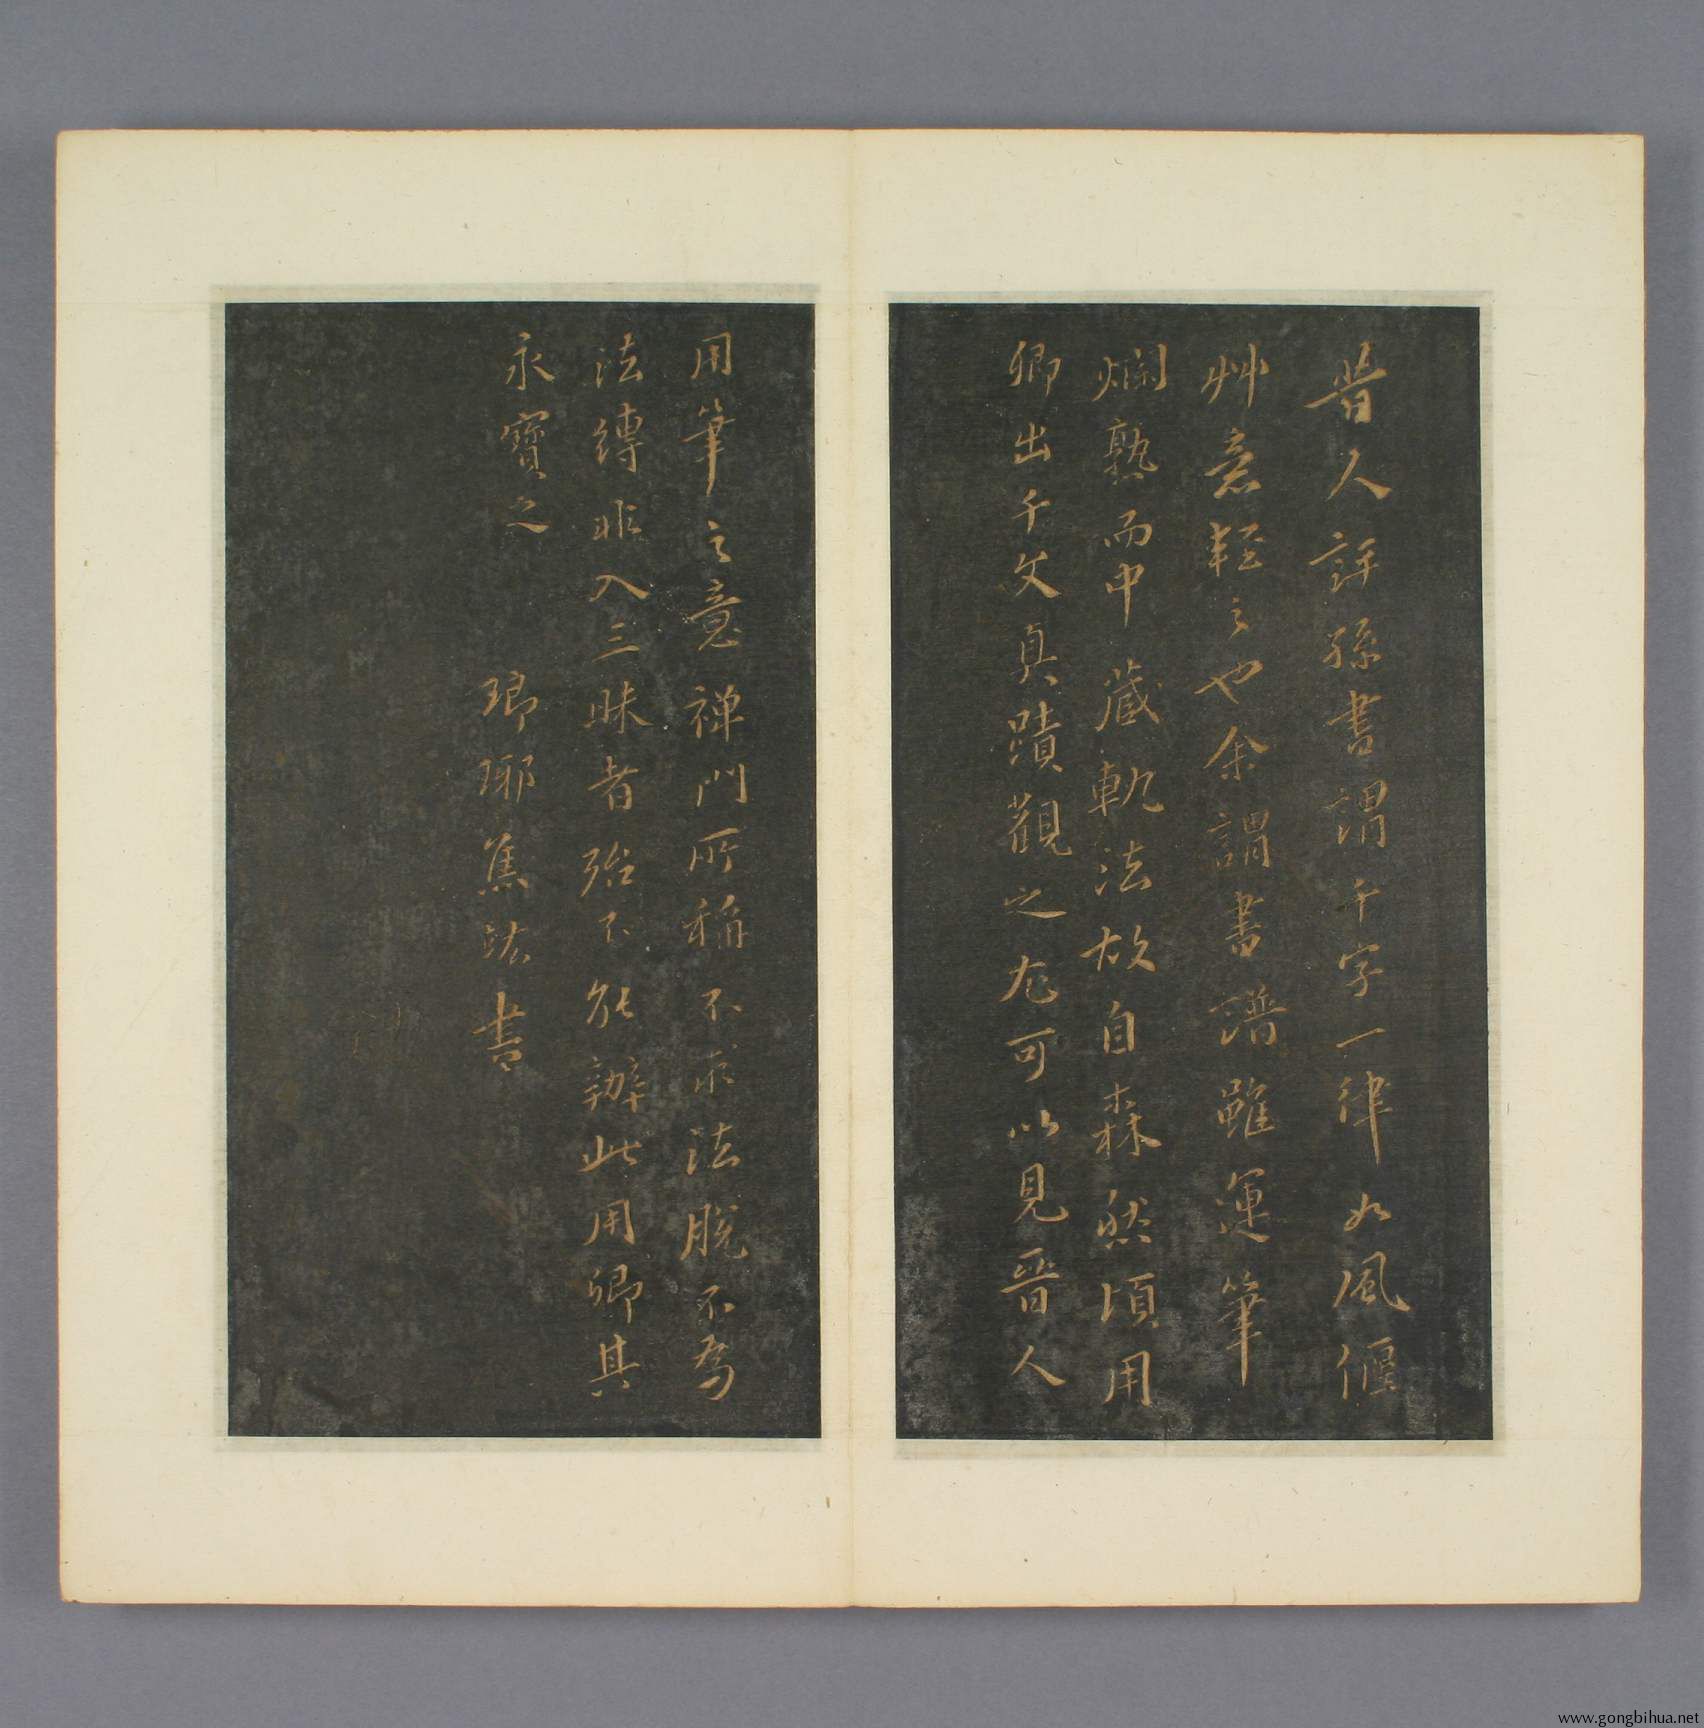 昔人評孫書謂千字一律如風偃
艸意輕之也余謂書譜雖運筆
爛熟而中藏軌法故自森然頃用
卿出千文真蹟觀之尤可以見晉人
用筆之意禅門所稱不求法脫不為
法縛非入三昧者殆不能辦此用卿其
永寶之
琅琊焦竑書
www.gongbihua.net